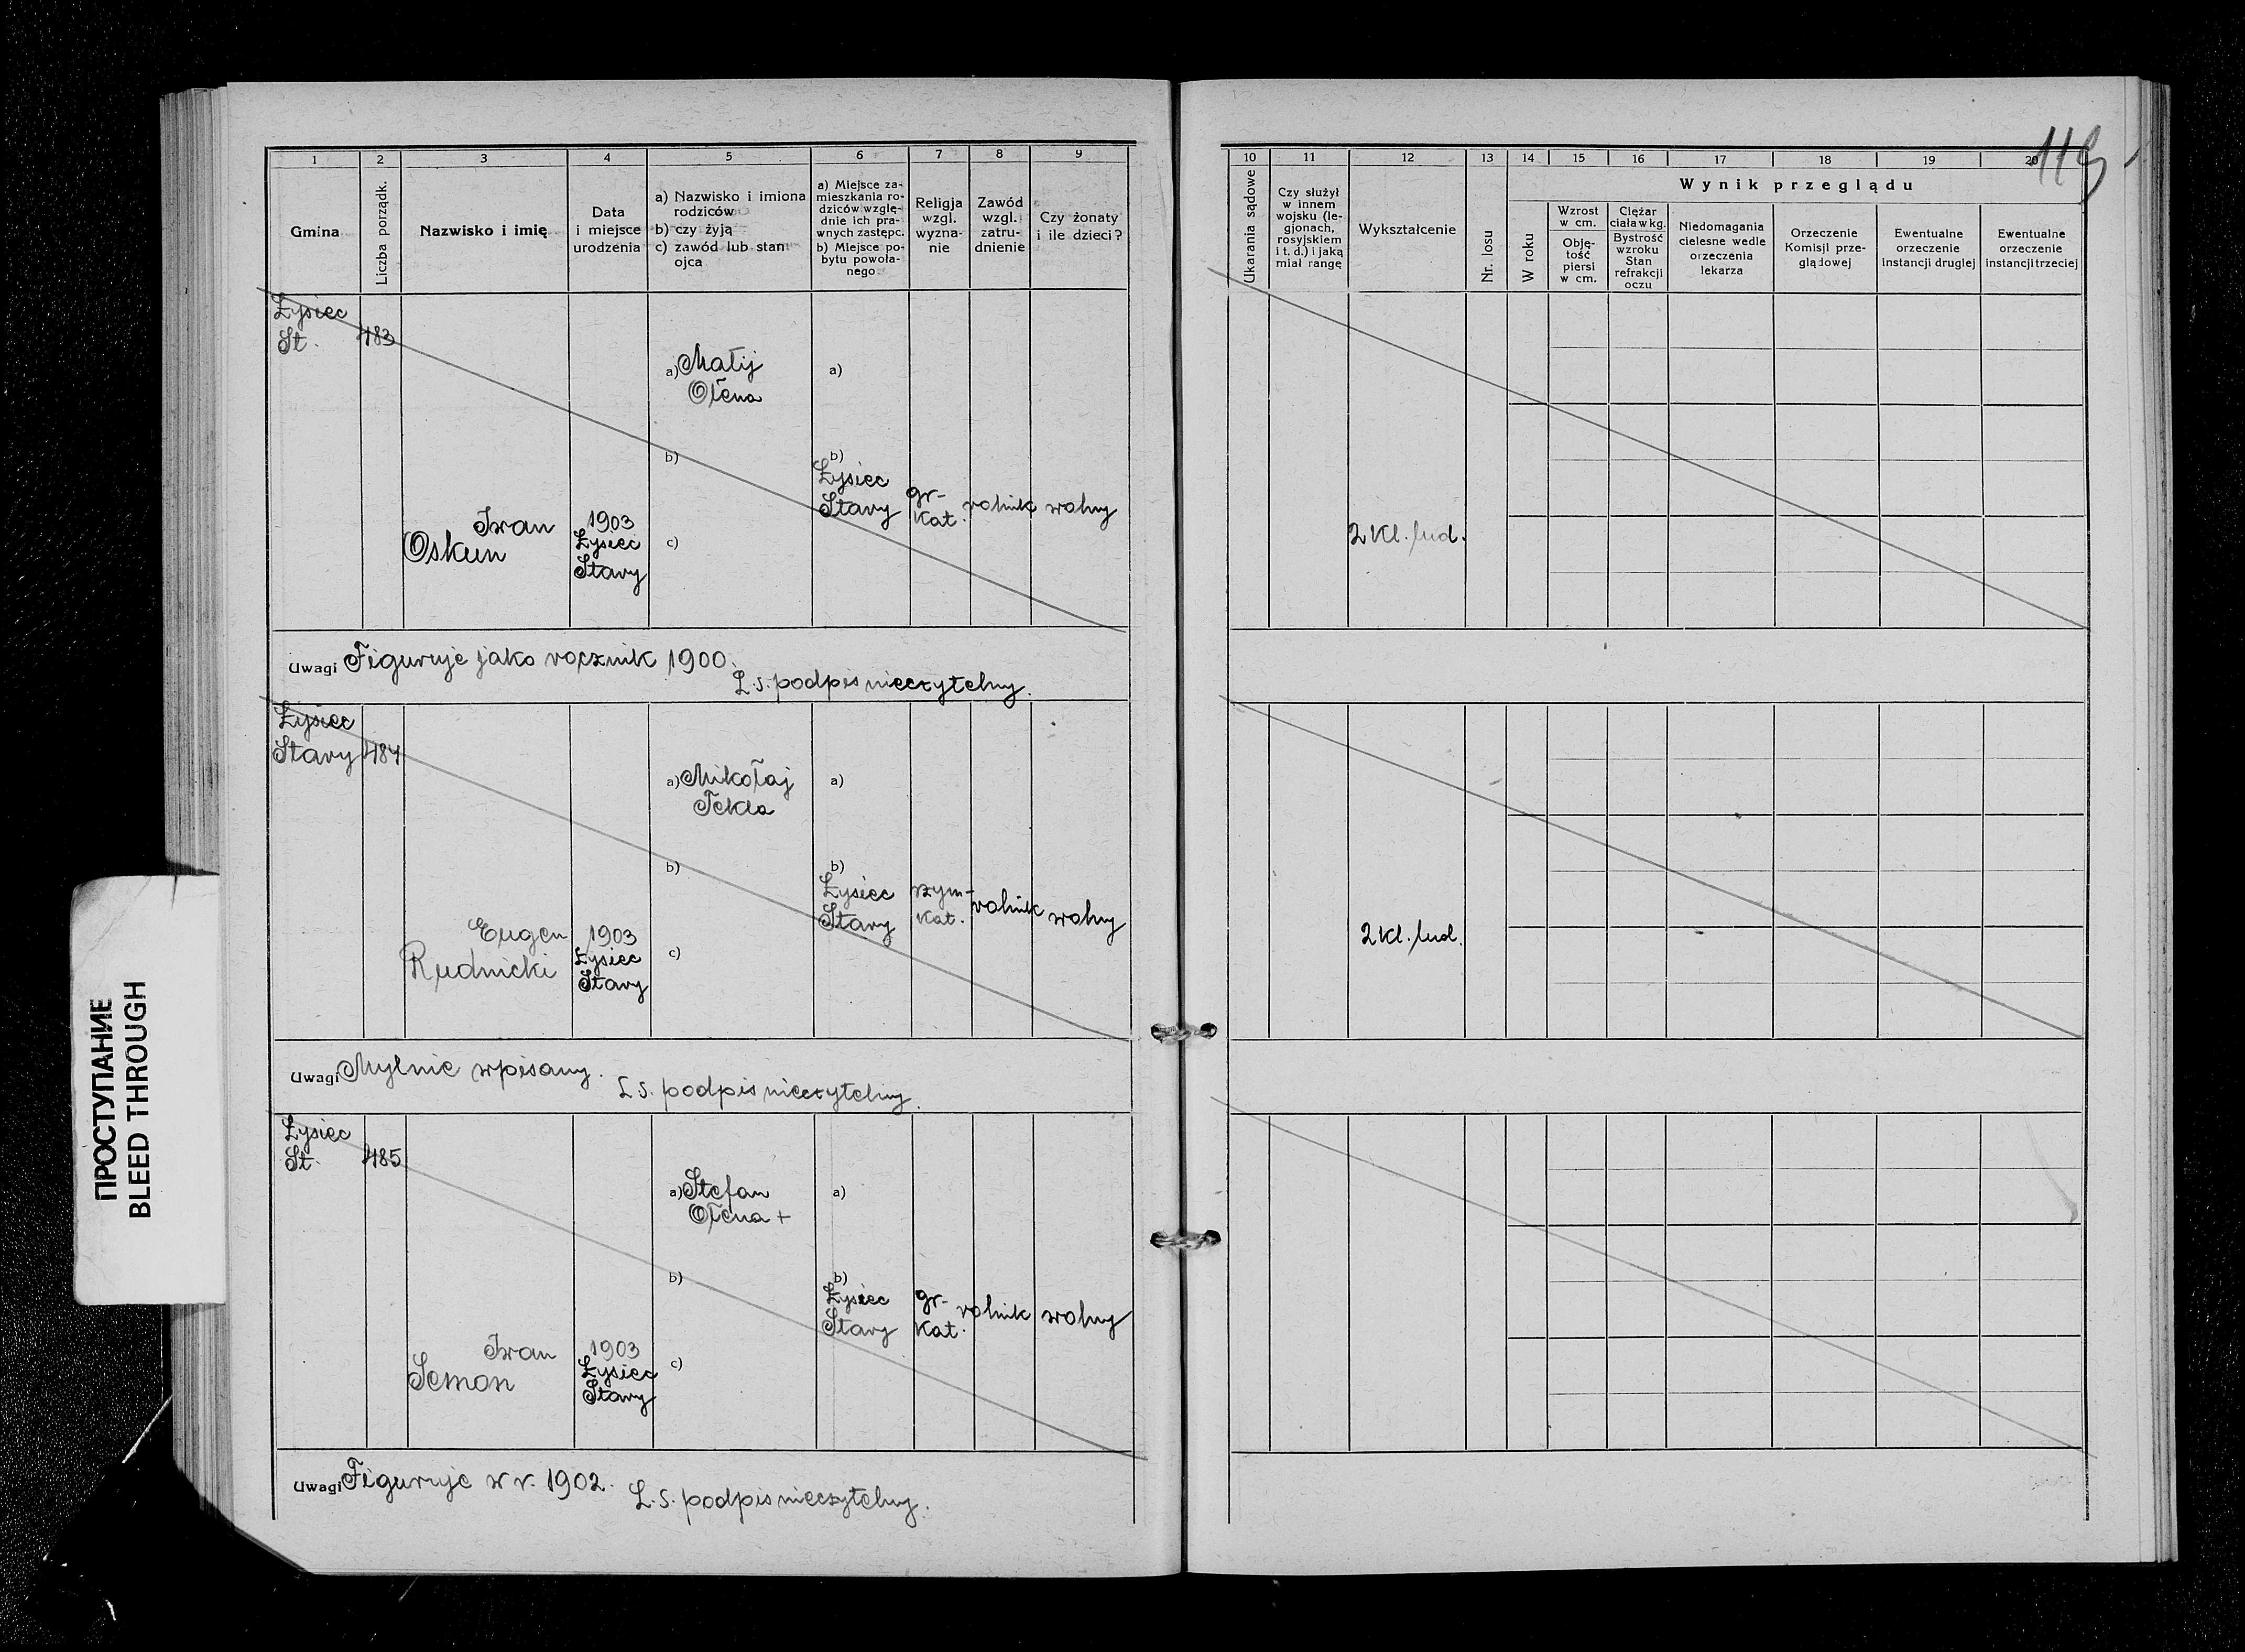 118
1 2 3 4 5 6 7 8 9
Gmina
Liczba porządk.
Nazwisko i imię
Data
i miejsce
urodzenia
a) Nazwisko i imiona
rodziców
b) czy żyją
c) zawód lub stan
ojca
a) Miejsce za-
mieszkania ro-
dziców wzglę-
dnie ich pra-
wnych zastępc.
b) Miejsce po-
bytu powoła-
nego
Religja
wzgl.
wyzna-
nie
Zawód
wzgl.
zatru-
dnienie
Czy żonaty
i ile dzieci?
10 11 12 13 14 15 16 17 18 19 20
Ukarania sądowe
Czy służył
w innem
wojsku (le-
gjonach,
rosyjskiem
i t. d.) i jaką
miał rangę
Wykształcenie
Nr. losu
Wynik przeglądu
W roku
Wzrost
w cm.
Obję-
tość
piersi
w cm.
Ciężar
ciała w kg.
Bystrość
wzroku
Stan
refrakcji
oczu
Niedomagania
cielesne wedle
orzeczenia
lekarza
Orzeczenie
Komisji prze-
glądowej
Ewentualne
orzeczenie
instancji drugiej
Ewentualne
orzeczenie
instancji trzeciej
Łysiec
St.
483
Iwan
Oskun
1903
Łysiec
Stary
a) Matij
Ołena
b)
c)
a)
b)
Łysiec
Stary
gr-
kat.
rolnik
wolny
2 kl. lud.
Uwagi Figuruje jako rocznik 1900.
L.s. podpis nieczytelny.
Łysiec
Stary
484
Eugen
Rudnicki
1903
Łysiec
Stary
a) Mikołaj
Tekla
b)
c)
a)
b)
Łysiec
Stary
rzym-
kat.
rolnik
wolny
2 kl. lud.
Uwagi Mylnie wpisany.
L.s. podpis nieczytelny.
Łysiec
St.
485
Iwan
Semon
1903
Łysiec
Stary
a) Stefan
Ołena +
b)
c)
a)
b)
Łysiec
Stary
gr-
kat.
rolnik
wolny
Uwagi Figuruje w r. 1902.
L.s. podpis nieczytelny.
ПРОСТУПАНИЕ
BLEED THROUGH